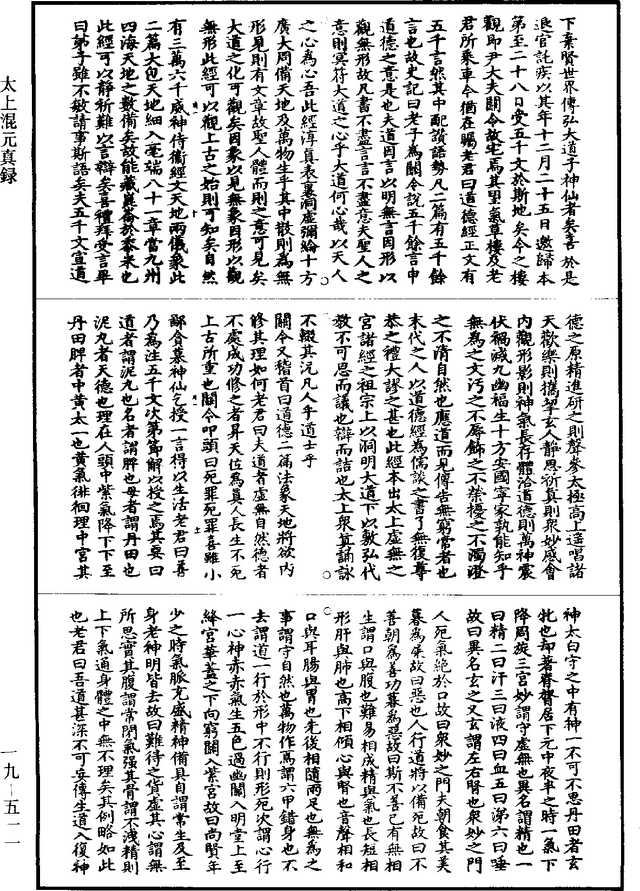 下棄賢世界傳弘大道子神仙者矣喜於是
退官託疾以其年十二月二十五日邀歸本
第至二十八日受五千文於斯地矣今之樓
觀即尹大夫關令故宅焉其望氣草樓及老
君所乘車今猶在矚老君曰道德經正文有
五千言然其中配讚語勢凡二篇有五千餘
言也故史記曰老子為關令說五千餘言申
道德之意是也夫道因言以明無言因形以
觀無形故凡書不盡言言不盡意夫聖人之
意則冥符大道之心乎大道何心哉以天人
之心為心吾此經淳真表裏洞虛彌綸十方
廣大周備天地及萬物生乎其中散則為無
形見則有文章故聖人體而則之意可見矣
大道之化可觀矣因象以見無象因形以觀
無形此經可以觀上古之始則可知矣自然
有三萬六千威神侍衛經文天地兩儀象此
二篇大包天地細入毫端八十一章當九州
四海天地之數備矣故能藏崑崙於黍米也
此經可以靜祈難以言辯矣喜禮拜受言畢
曰弟子雖不敏請事斯語矣夫五千文宣道
德之原精進研之則聲參太極高上遙唱諸
天歡樂則攜契玄人靜思祈真則眾妙感會
內觀形影則神氣長存體洽道德則萬神震
伏禍滅九幽福生十方安國寧家孰能知乎
無為之文污之不辱飾之不榮撓之不濁澄
之不清自然也應道而見傳告無窮常者也
末代之人以道德經為儒談之書了無復尊
恭之禮大謬之甚也此經本出太上虛無之
宮諸經之祖宗上以洞明大道下以敷弘代
教不可思而議也辯而詰也太上眾真誦詠
不輟其況凡人乎道士乎
關令又稽首曰道德二篇法象天地將欲內
修其理如何老君曰夫道者虛無自然德者
不處成功修之者昇天位為真人長生不死
上古所重也關令叩頭曰死罪死罪喜雖小
鄙貪慕神仙乞授一言得以生活老君曰善
乃為注五千文次第節解以授之焉其要曰
道者謂泥丸也名者謂脾也母者謂丹田也
泥丸者天德也理在人頭中紫氣降下下至
丹田脾者中黃太一也黃氣徘徊理中宮其
神太白守之中有神一不可不思丹田者玄
牝也却著脊膂居下元中夜半之時一氣下
降周旋三宮妙謂守虛無也異名謂精也一
曰精二曰汗三曰液四曰血五曰涕六曰唾
故曰異名玄之又玄謂左右腎也眾妙之門
人死氣絕於口故曰眾妙之門夫朝食其美
暮為屎故曰惡也人行道將以備死故曰不
善朝為善功暮為惡故曰斯不善已有無相
生謂口與腹也難易相成精與氣也長短相
形肝與肺也高下相傾心與腎也音聲相和
口與耳腸與胃也先後相隨兩足也無為之
事謂守自然也萬物作焉謂六甲錯身也不
去謂道一行於形中不行則形死次謂心行
一心神赤赤氣生五色過幽關入明堂上至
絳宮華蓋之下向窮關入紫宮故曰尚賢年
少之時氣脈充盛精神備具自謂常生及至
身老神明皆去故曰難得之貨虛其心謂無
所思實其腹謂常閉氣強其骨謂不洩精則
上下氣通身體之中無不理矣其例略如此
也老君曰吾道甚深不可妄傳生道入復神
太上混元真録
一九－五一一